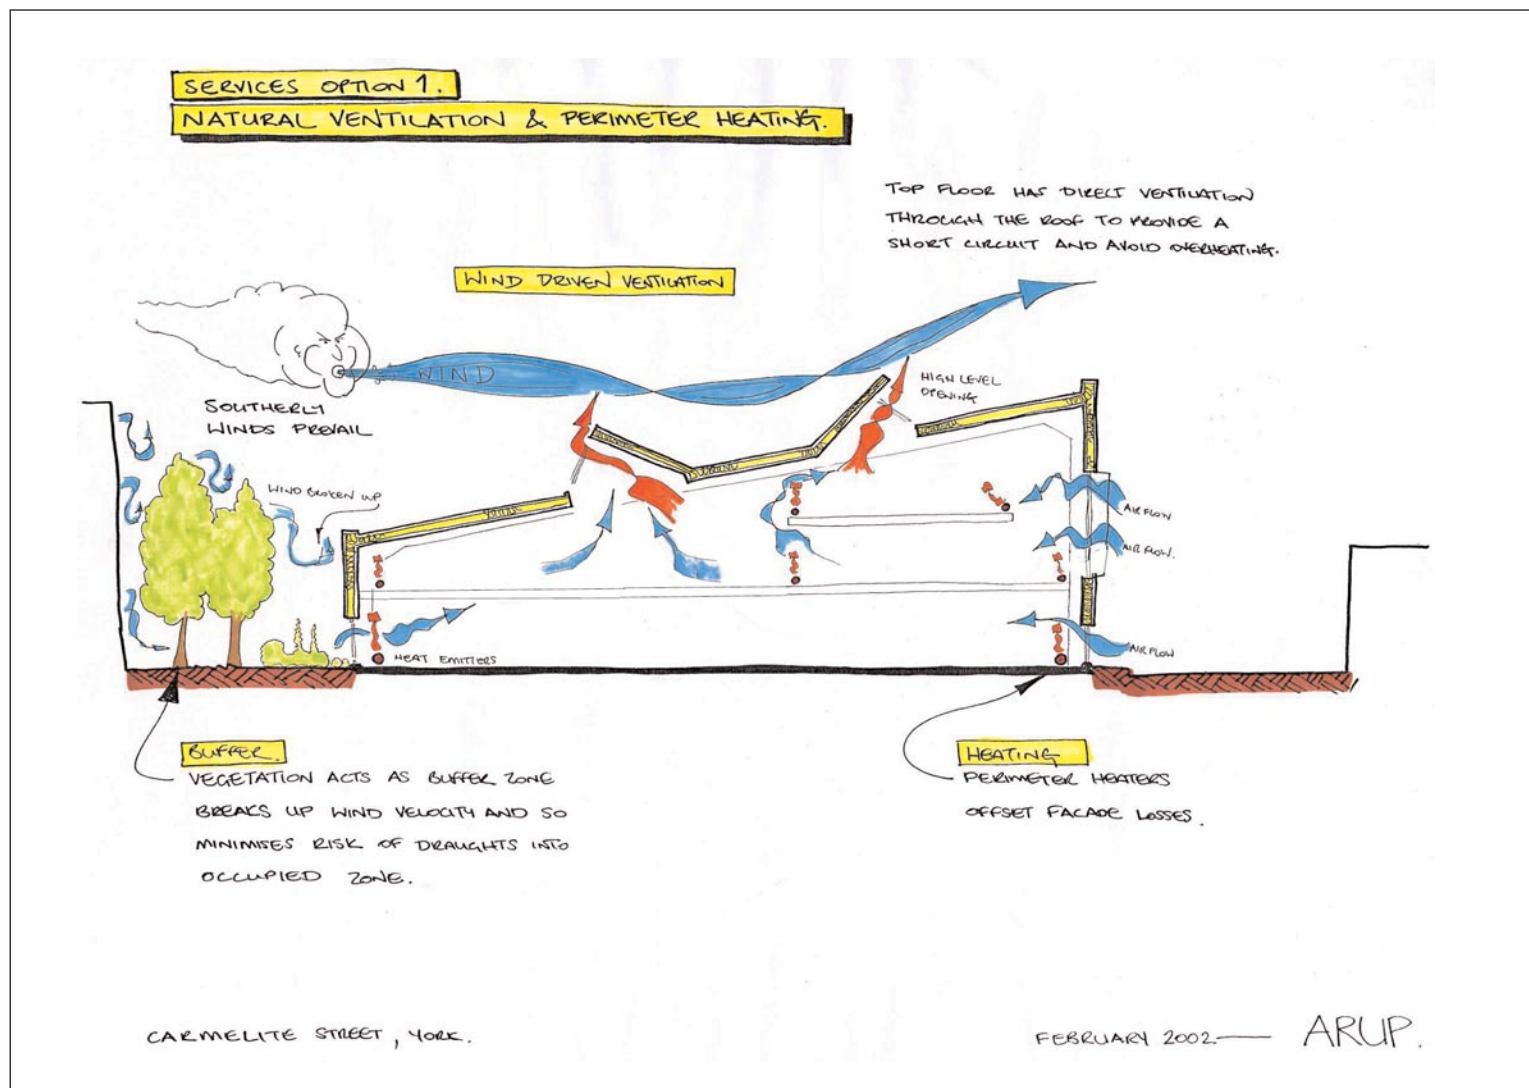 SERVICES OPTION 1.
NATURAL VENTILATION & PERIMETER HEATING.
TOP FLOOR HAS DIRECT VENTILATION
THROUGH THE ROOF TO PROVIDE A
SHORT CIRCUIT AND AVOID OVERHEATING.
WIND DRIVEN VENTILATION
WIND
HIGH LEVEL
OPENING
SOUTHERLY
WINDS PREVAIL
WIND BROKEN UP
AIRFLOW
AIRFLOW.
AIRFLOW
HEAT EMITTERS
BUFFER.
VEGETATION ACTS AS BUFFER ZONE
BREAKS UP WIND VELOCITY AND SO
MINIMISES RISK OF DRAUGHTS INTO
OCCUPIED ZONE.
HEATING
PERIMETER HEATERS
OFFSET FACADE LOSSES.
CARMELITE STREET, YORK.
FEBRUARY 2002 — ARUP.